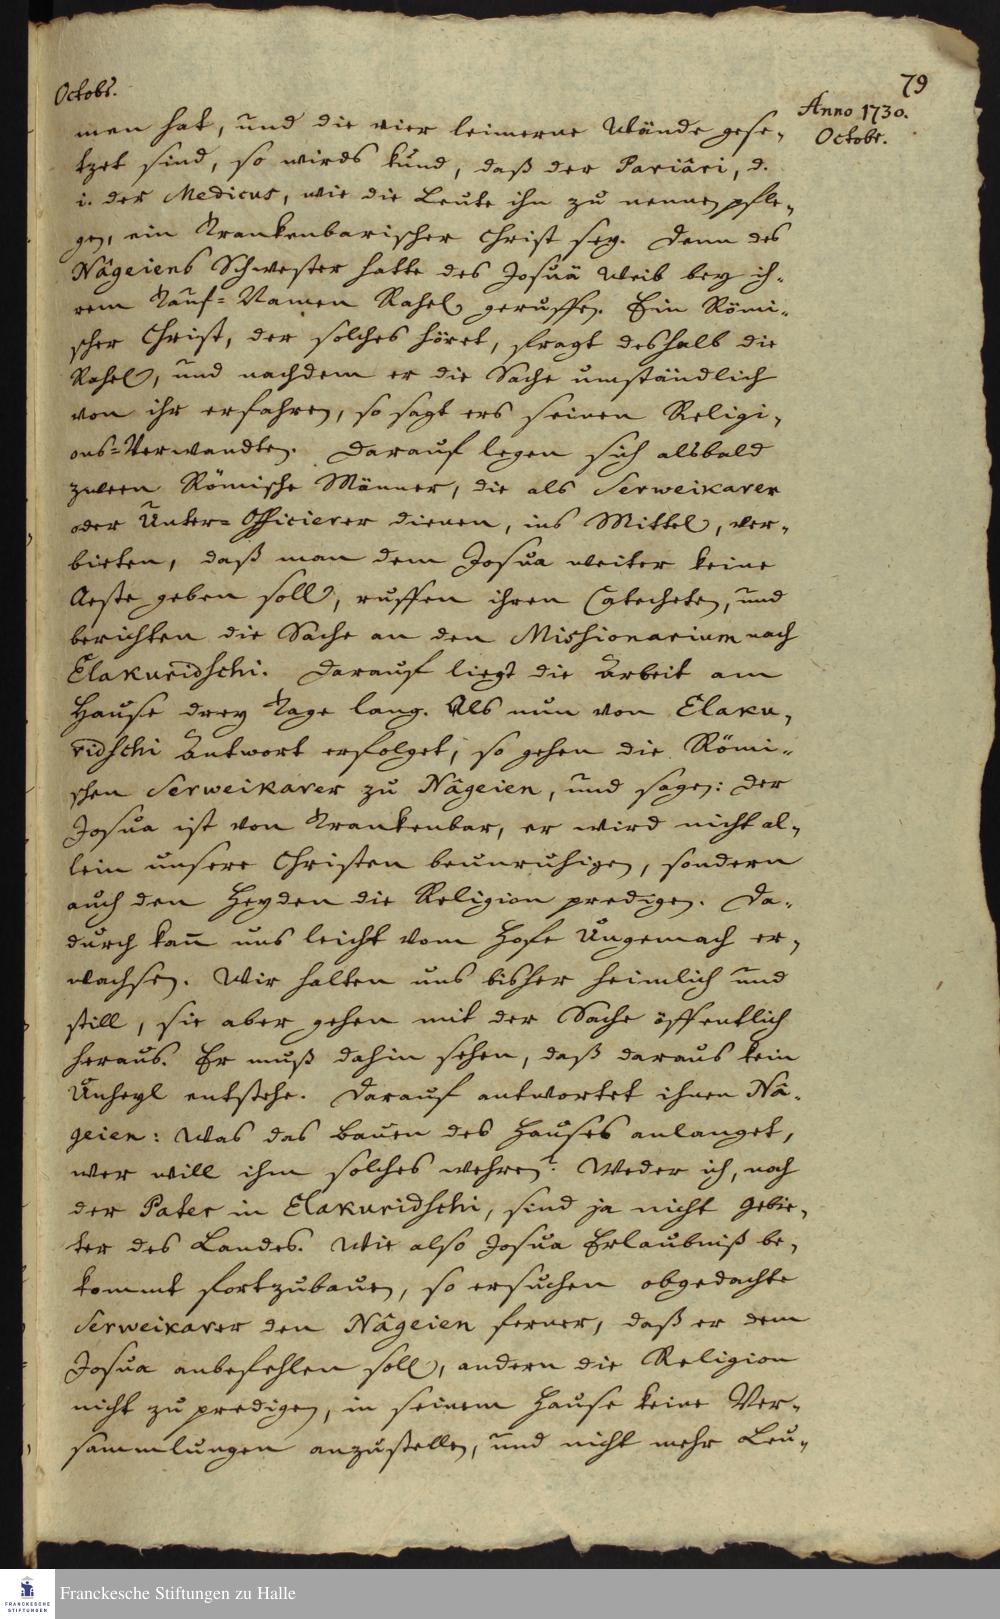 79
Octobr.
Anno 1730.
Octobr.
men hat, und die vier leimerne Wände gese-
tzet sind, so wirds kund, daß der Pariâri, d.
i. der Medicus, wie die Leute ihn zu nennen pfle-
gen, ein Trankenbarischer Christ sey. Denn des
Nâgeiens Schwester hatte des Josuä Weib bey ih-
rem Tauf-Namen Rahel geruffen. Ein Römi-
scher Christ, der solches höret, fragt deshalb die
Rahel, und nachdem er die Sache umständlich
von ihr erfahren, so sagt ers seinen Religi-
ons-Verwandten. Darauf legen sich alsbald
zween Römische Männer, die als Serweikarer
oder Unter-Officierer dienen, ins Mittel, ver-
bieten, daß man dem Josua weiter keine
Aeste geben soll, ruffen ihren Catecheten, und
berichten die Sache an den Missionarium nach
Elakuridschi. Darauf liegt die Arbeit am
Hause drey Tage lang. Als nun von Elaku-
ridschi Antwort erfolget, so gehen die Römi-
schen Serweikarer zu Nâgeien, und sagen: Der
Josua ist von Trankenbar, er wird nicht al-
lein unsere Christen beunruhigen, sondern
auch den Heyden die Religion predigen. Da-
durch kan uns leicht vom Hofe Ungemach er-
wachsen. Wir halten uns bisher heimlich und
still, sie aber gehen mit der Sache öffentlich
heraus. Er muß dahin sehen, daß daraus kein
Unheyl entstehe. Darauf antwortet ihnen Nâ-
geien: Was das Bauen des Hauses anlanget,
wer will ihm solches wehren? Weder ich, noch
der Pater in Elakuridschi, sind ja nicht Gebie-
ter des Landes. Wie also Josua Erlaubniß be-
kommt fortzubauen, so ersuchen obgedachte
Serweikarer den Nâgeien ferner, daß er dem
Josua anbefehlen soll, andern die Religion
nicht zu predigen, in seinem Hause keine Ver-
sammlungen anzustellen, und nicht mehr Leu-
FRANCKESCHE
STIFTUNGEN
Franckesche Stiftungen zu Halle